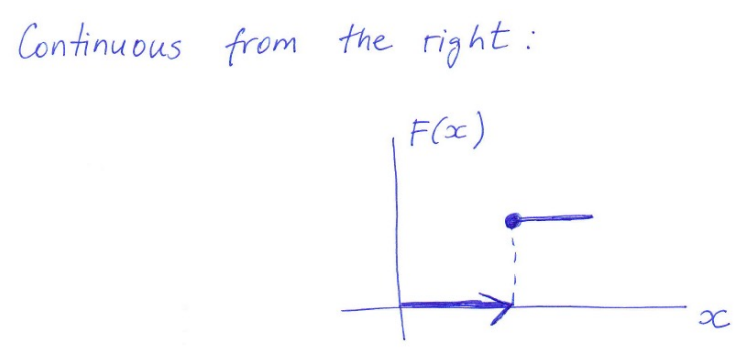 Continuous from the right :
F(x)
x